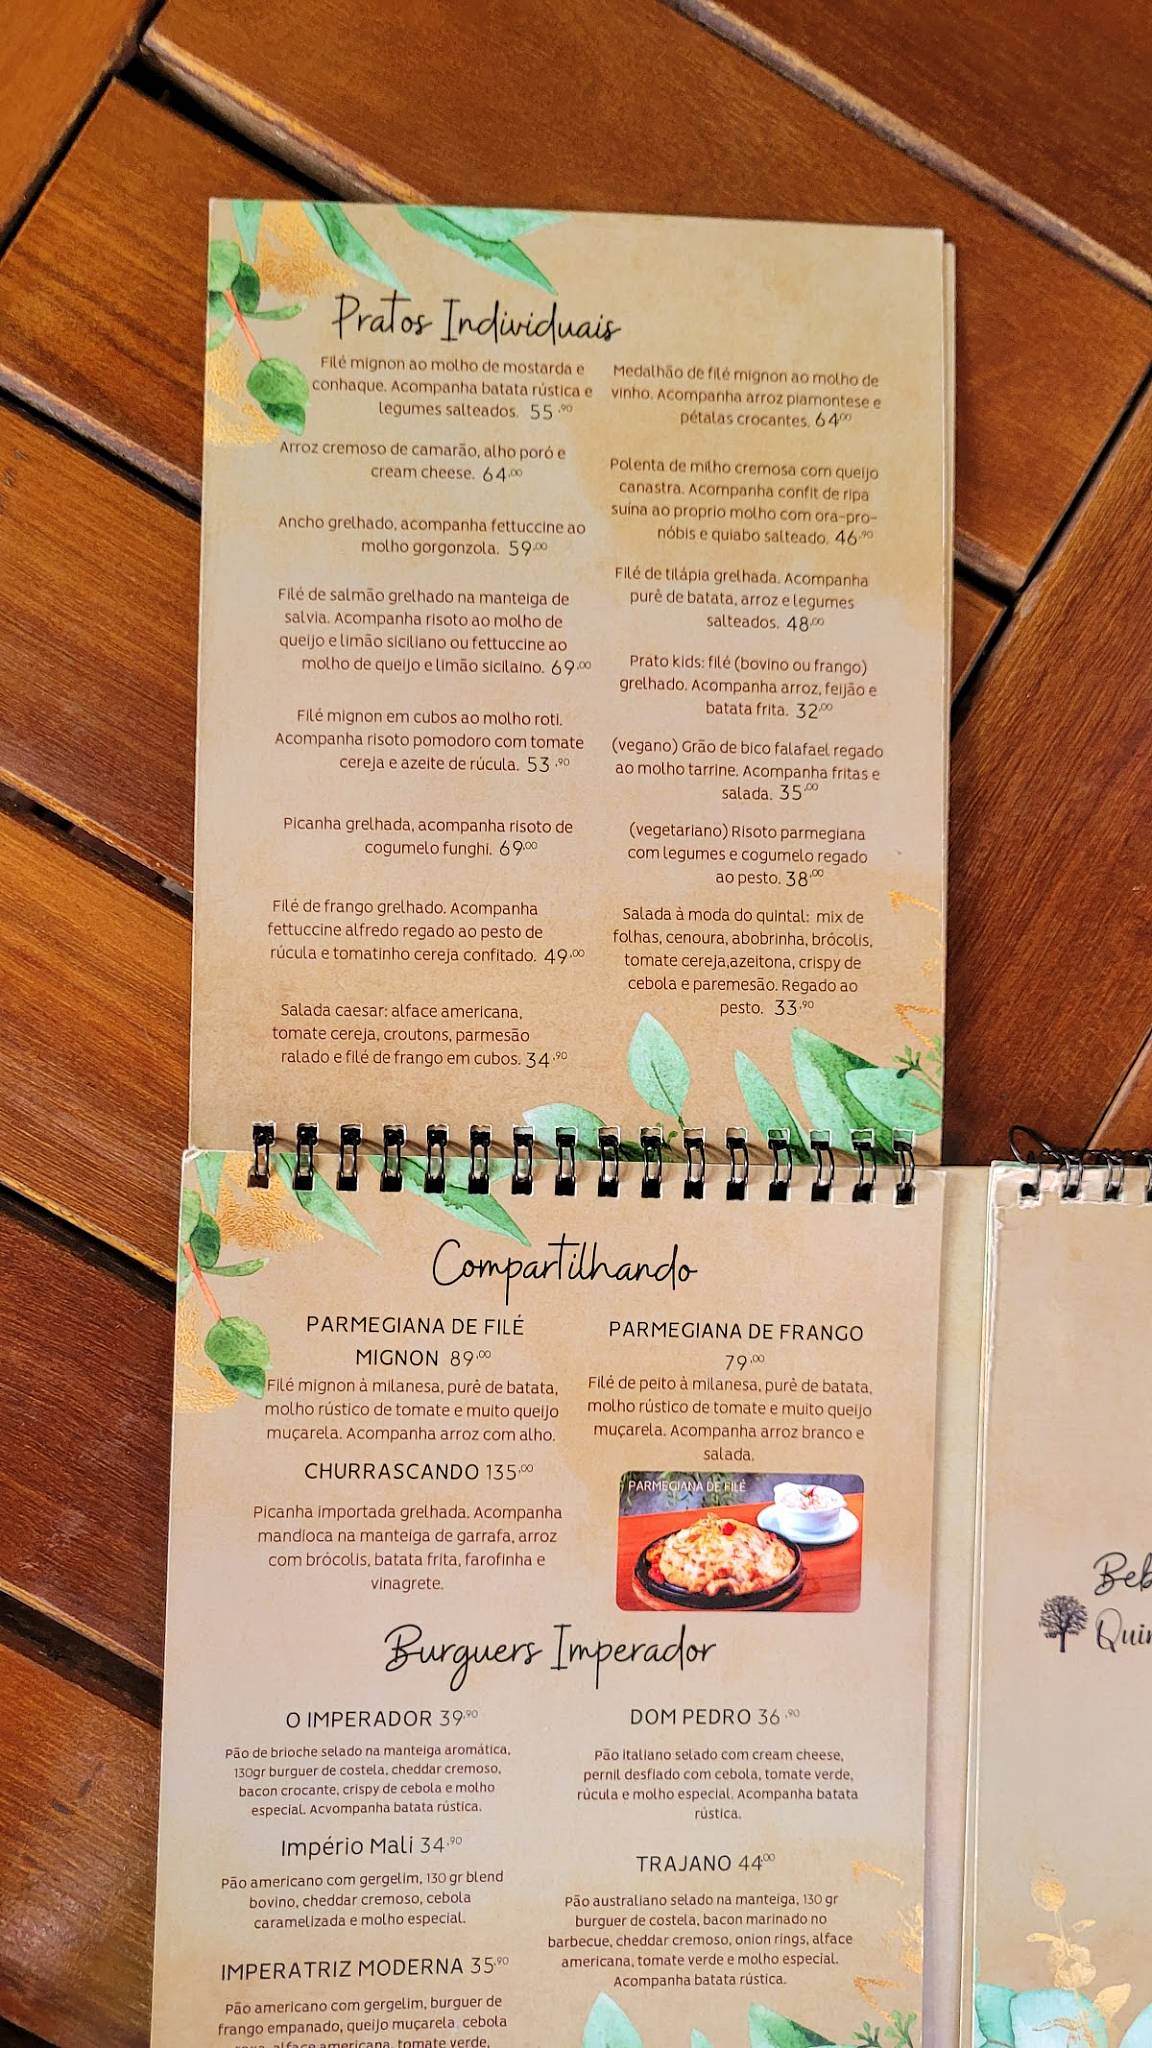 Pratos Individuais
Filé mignon ao molho de mostarda e
conhaque. Acompanha batata rústica e
legumes salteados. 55,90
Arroz cremoso de camarão, alho poró e
cream cheese. 64,00
Ancho grelhado, acompanha fettuccine ao
molho gorgonzola. 59,00
Filé de salmão grelhado na manteiga de
salvia. Acompanha risoto ao molho de
queijo e limão siciliano ou fettuccine ao
molho de queijo e limão sicilaino. 69,00
Filé mignon em cubos ao molho roti.
Acompanha risoto pomodoro com tomate
cereja e azeite de rúcula. 53,90
Picanha grelhada, acompanha risoto de
cogumelo funghi. 69,00
Filé de frango grelhado. Acompanha
fettuccine alfredo regado ao pesto de
rúcula e tomatinho cereja confitado. 49,00
Salada caesar: alface americana,
tomate cereja, croutons, parmesão
ralado e filé de frango em cubos. 34,90
Medalhão de filé mignon ao molho de
vinho. Acompanha arroz piamontese e
pétalas crocantes. 64,00
Polenta de milho cremosa com queijo
canastra. Acompanha confit de ripa
suína ao proprio molho com ora-pro-
nóbis e quiabo salteado. 46,90
Filé de tilápia grelhada. Acompanha
purê de batata, arroz e legumes
salteados. 48,00
Prato kids: filé (bovino ou frango)
grelhado. Acompanha arroz, feijão e
batata frita. 32,00
(vegano) Grão de bico falafael regado
ao molho tarrine. Acompanha fritas e
salada. 35,00
(vegetariano) Risoto parmegiana
com legumes e cogumelo regado
ao pesto. 38,00
Salada à moda do quintal: mix de
folhas, cenoura, abobrinha, brócolis,
tomate cereja,azeitona, crispy de
cebola e paremesão. Regado ao
pesto. 33,90
Compartilhando
PARMEGIANA DE FILÉ
MIGNON 89,00
Filé mignon à milanesa, purê de batata,
molho rústico de tomate e muito queijo
muçarela. Acompanha arroz com alho.
CHURRASCANDO 135,00
Picanha importada grelhada. Acompanha
mandioca na manteiga de garrafa, arroz
com brócolis, batata frita, farofinha e
vinagrete.
PARMEGIANA DE FRANGO
79,00
Filé de peito à milanesa, purê de batata,
molho rústico de tomate e muito queijo
muçarela. Acompanha arroz branco e
salada.
PARMEGIANA DE FILÉ
Burguers Imperador
O IMPERADOR 39,90
Pão de brioche selado na manteiga aromática,
130gr burguer de costela, cheddar cremoso,
bacon crocante, crispy de cebola e molho
especial. Acvompanha batata rústica.
Império Mali 34,90
Pão americano com gergelim, 130 gr blend
bovino, cheddar cremoso, cebola
caramelizada e molho especial.
IMPERATRIZ MODERNA 35,90
Pão americano com gergelim, burguer de
frango empanado, queijo muçarela, cebola
roxa, alface americana, tomate verde,
DOM PEDRO 36,90
Pão italiano selado com cream cheese,
pernil desfiado com cebola, tomate verde,
rúcula e molho especial. Acompanha batata
rústica.
TRAJANO 44,00
Pão australiano selado na manteiga, 130 gr
burguer de costela, bacon marinado no
barbecue, cheddar cremoso, onion rings, alface
americana, tomate verde e molho especial.
Acompanha batata rústica.